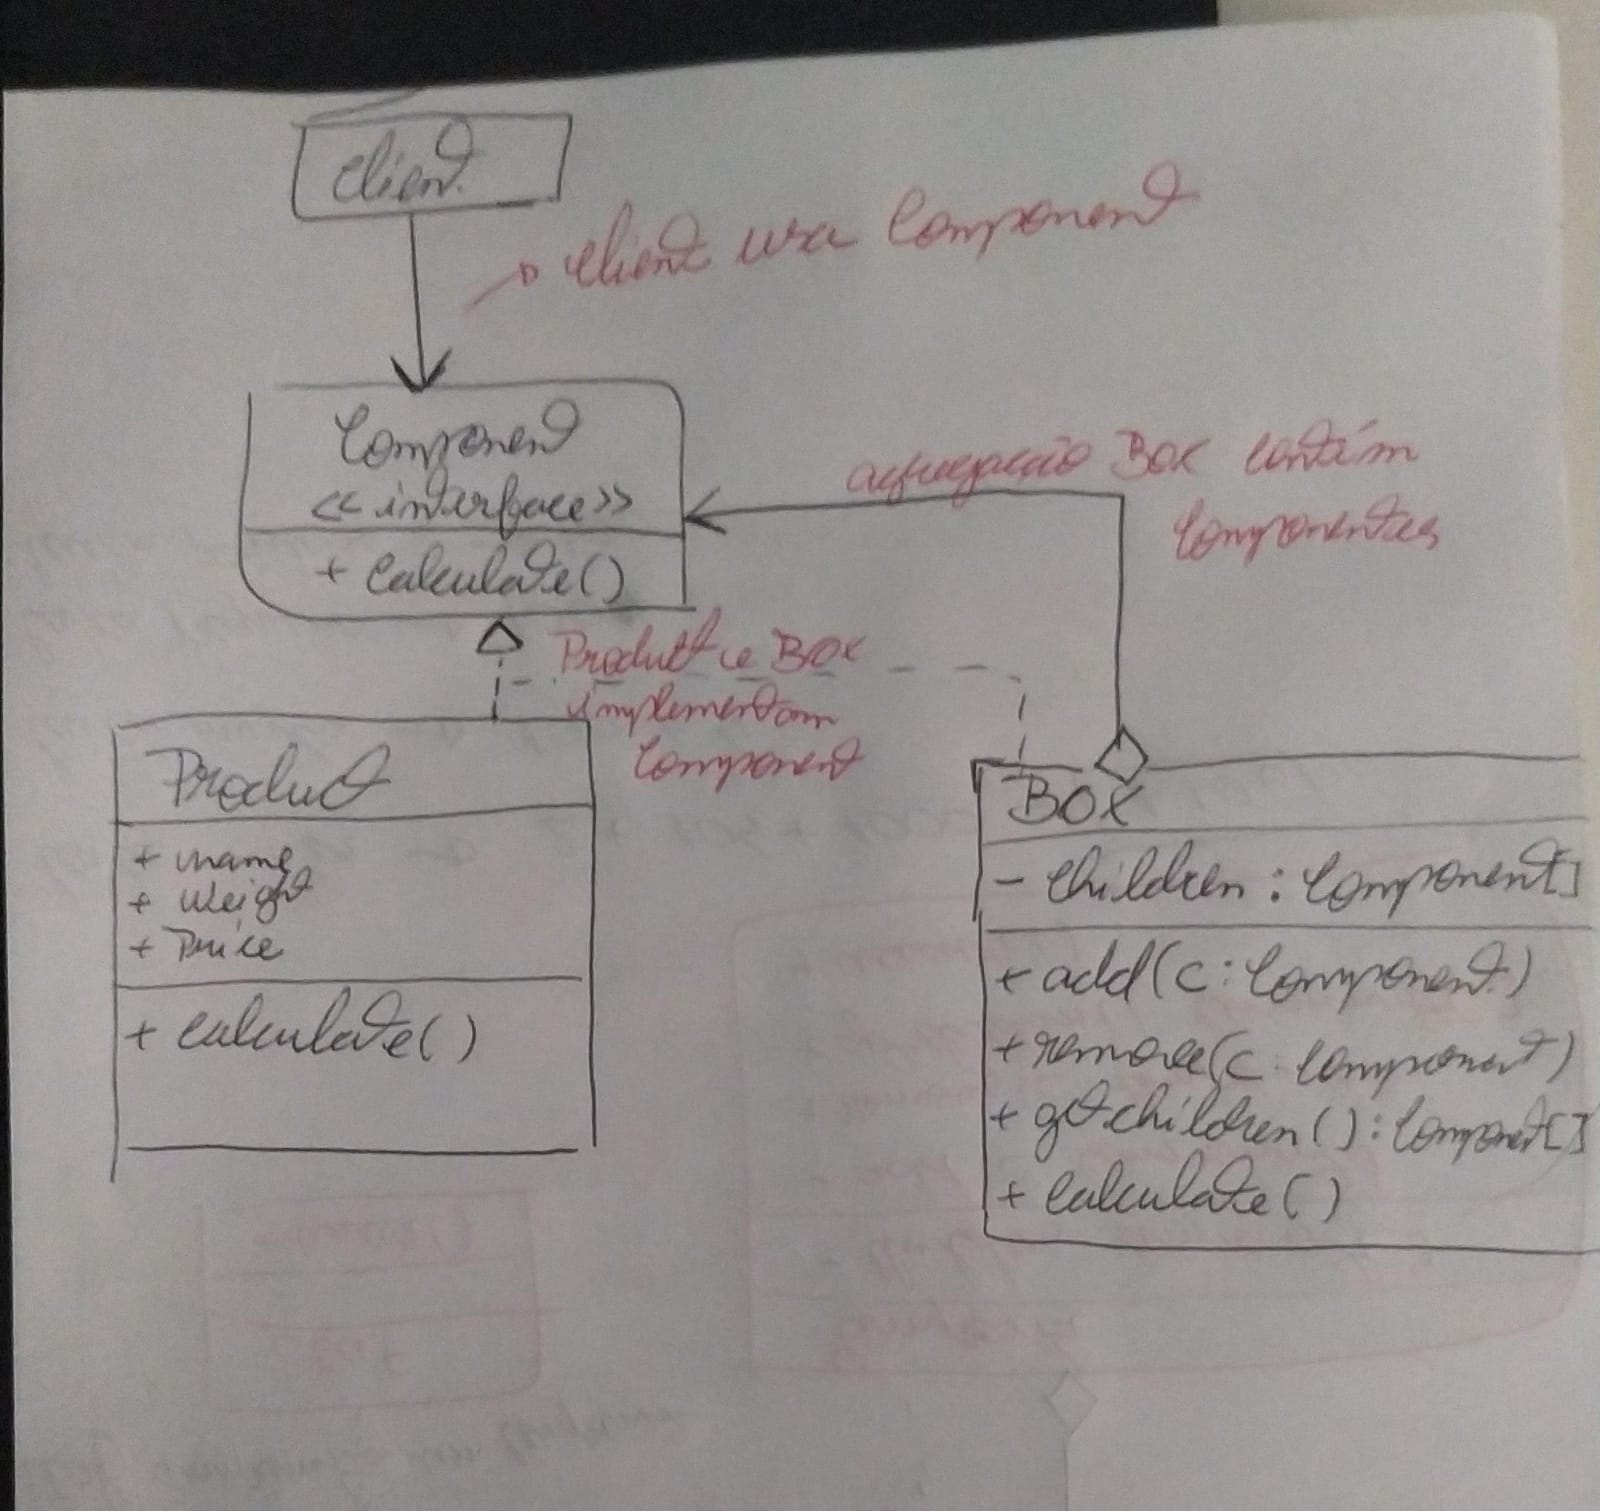 Client
Client usa Component
Component
<<interface>>
+ calculate()
agregação Box contém
Componentes
Product e Box
implementam
Component
Product
+ name
+ weight
+ Price
+ calculate()
BOX
- children : Component[]
+ add(c : Component)
+ remove(c : Component)
+ getchildren() : Component[]
+ calculate()